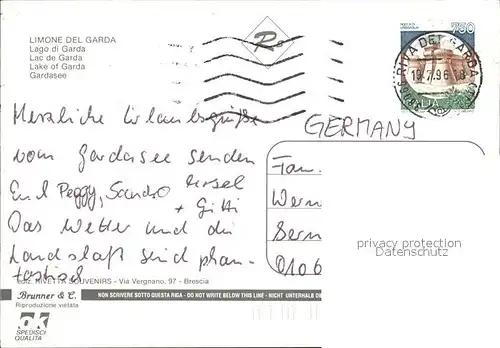 LIMONE DEL GARDA
Lago di Garda
Lac de Garda
Lake of Garda
Gardasee
R
750
ITALIA
19.7.96
Herzliche Urlaubsgrüße
vom Gardasee senden
Euch Peggy, Sandro Ursel
+ Gitti
Das Wetter und die
Landschaft sind phan-
tastisch
GERMANY
Fam.
Wern
Bern
0106
privacy protection
Datenschutz
RIVETTA SOUVENIRS - Via Vergnano, 97 - Brescia
Brunner & C.
NON SCRIVERE SOTTO QUESTA RIGA - DO NOT WRITE BELOW THIS LINE - NICHT UNTERHALB DI
Riproduzione vietata
SPEDISCI
QUALITÀ